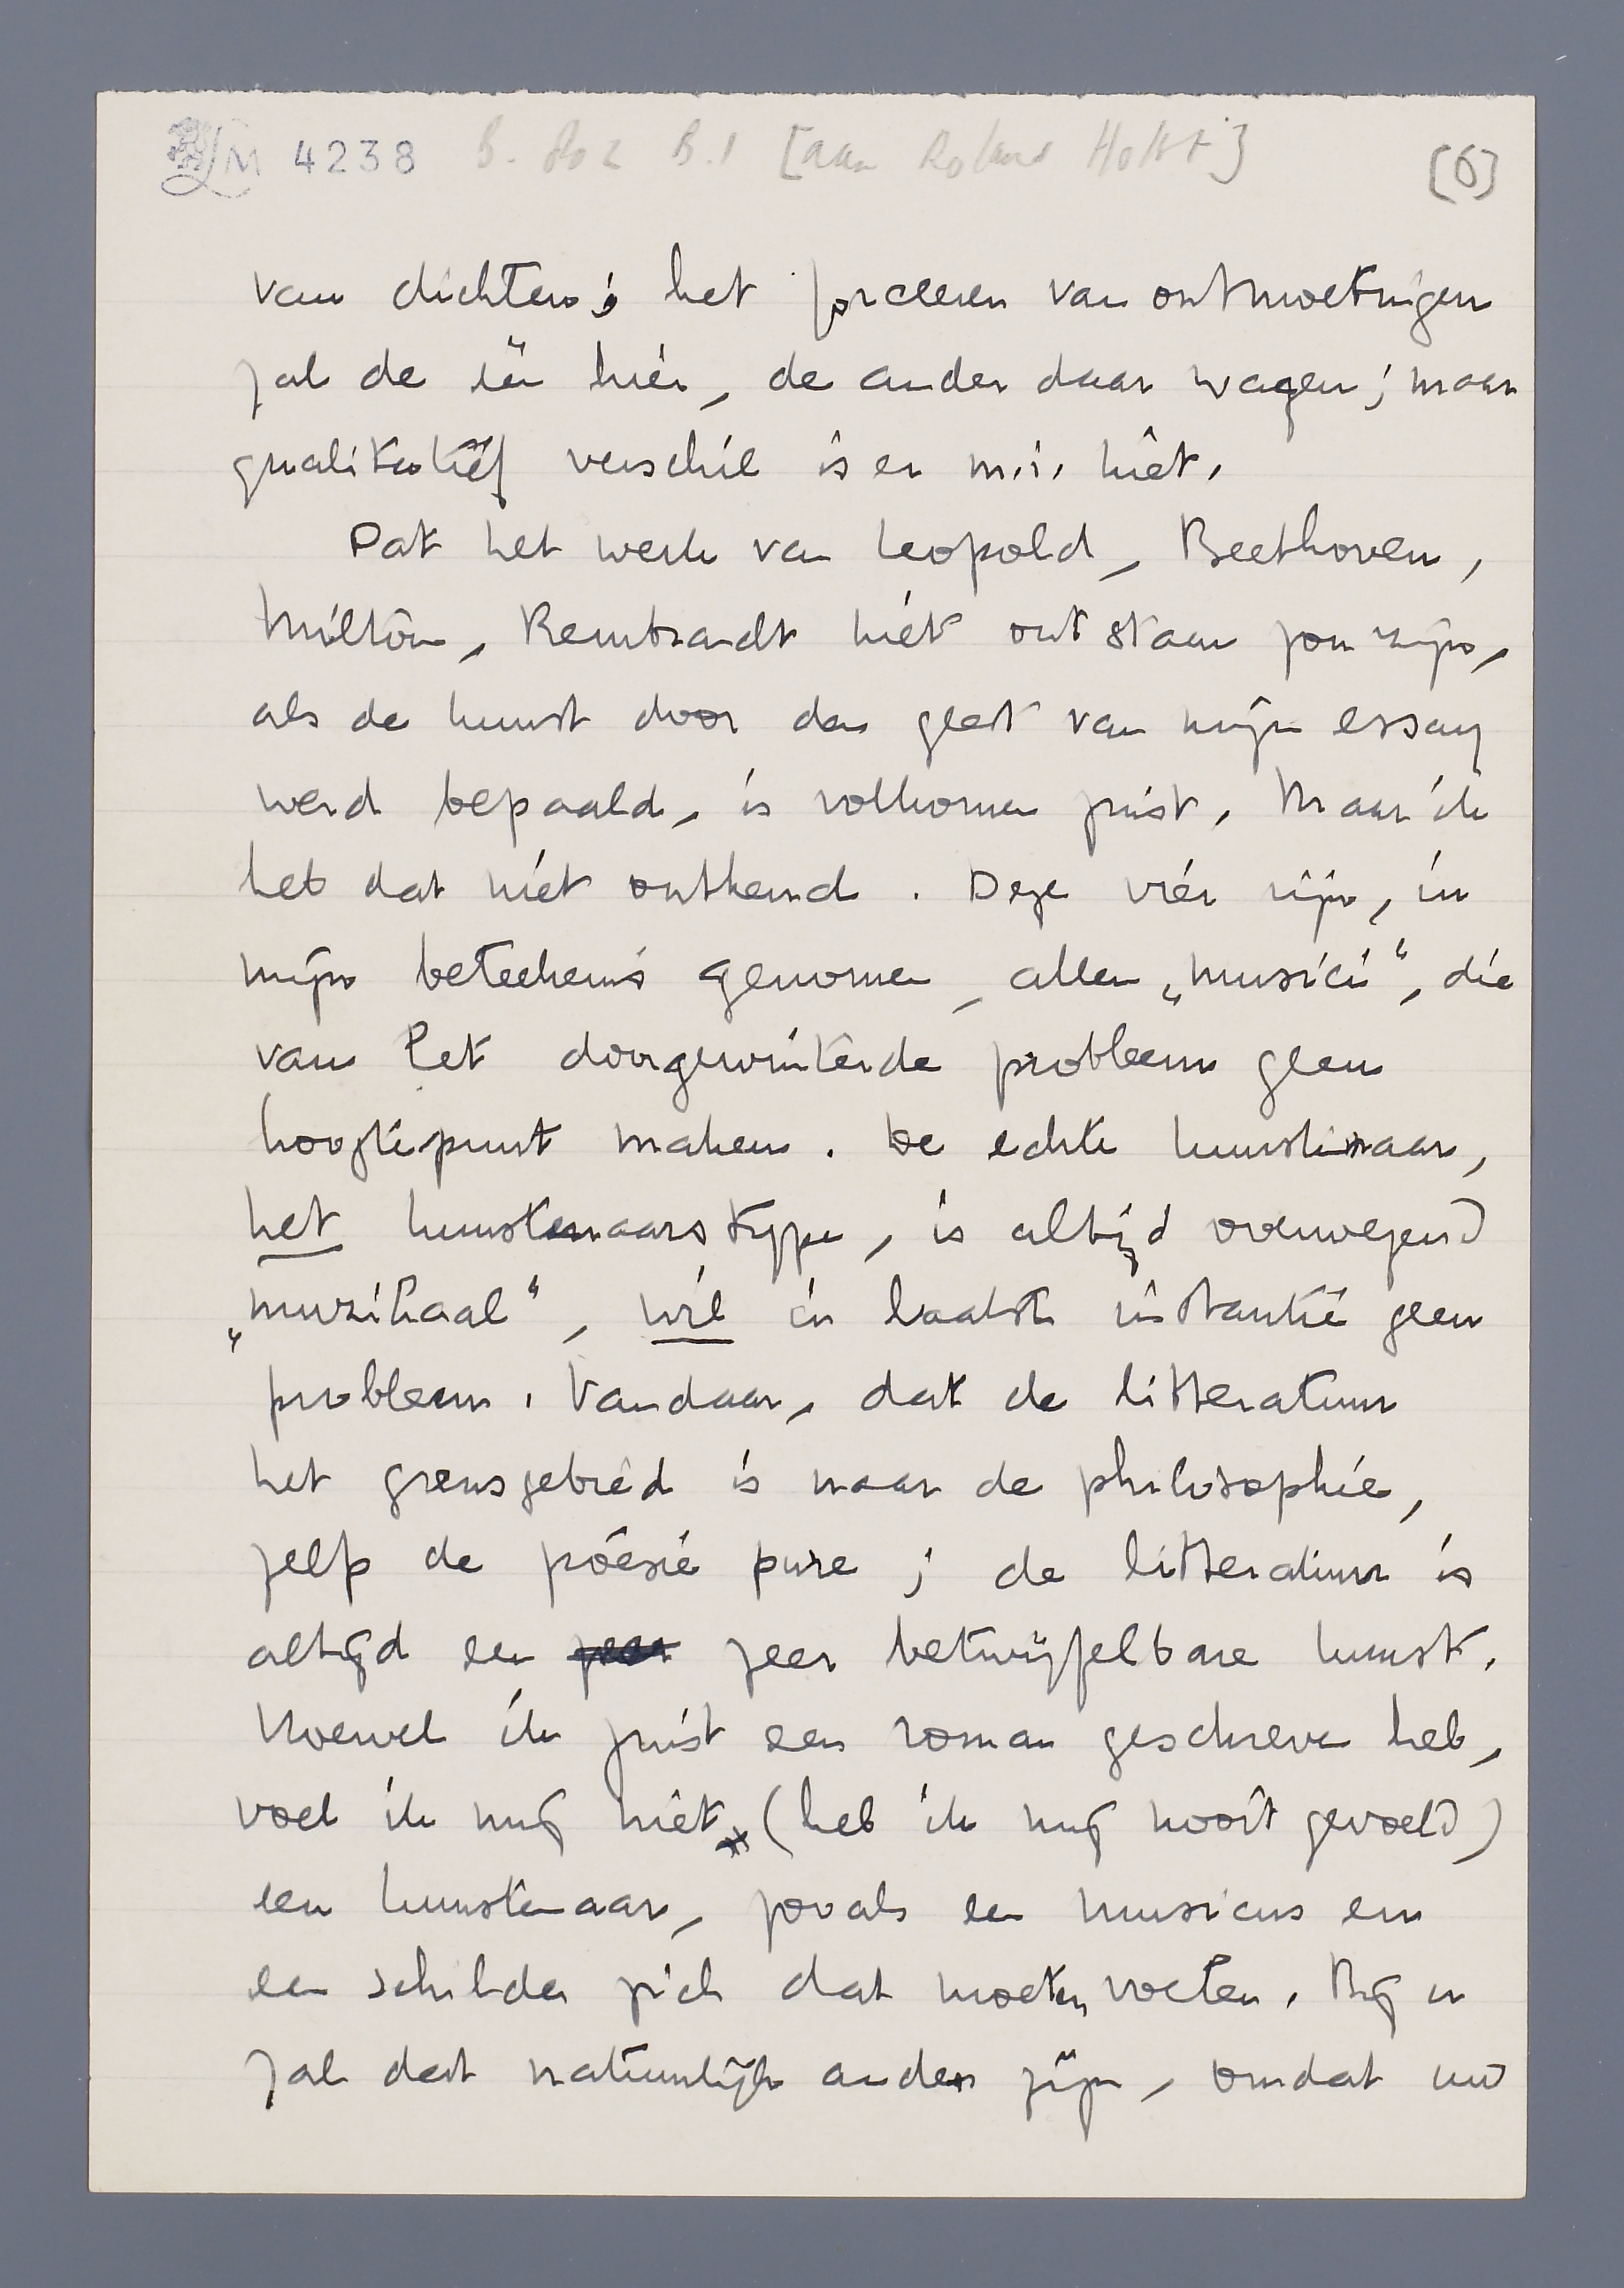 4238 B.1 [aan Roland Holst] [6]
van dichters; het forceeren van ontmoetingen
zal de één hier, de ander daar wagen; maar
qualitatief verschil is er m.i. niet.
Dat het werk van Leopold, Beethoven,
Milton, Rembrandt niet ontstaan zou zijn,
als de kunst door den geest van mijn essay
werd bepaald, is volkomen juist. Maar ik
heb dat niet ontkend. Deze vier zijn, in
mijn beteekenis genomen, allen „musici", die
van het doorgewinterde probleem geen
hoogtepunt maken. De echte kunstenaar,
het kunstenaarstype, is altijd overwegend
„muzikaal", wil in laatste instantie geen
probleem. Vandaar, dat de litteratuur
het grensgebied is naar de philosophie,
zelfs de poésie pure; de litteratuur is
altijd een zeer betwijfelbare kunst.
Hoewel ik juist een roman geschreven heb,
voel ik mij niet (heb ik mij nooit gevoeld)
een kunstenaar, zooals een musicus en
een schilder zich dat moeten voelen. Bij u
zal dat natuurlijk anders zijn, omdat uw